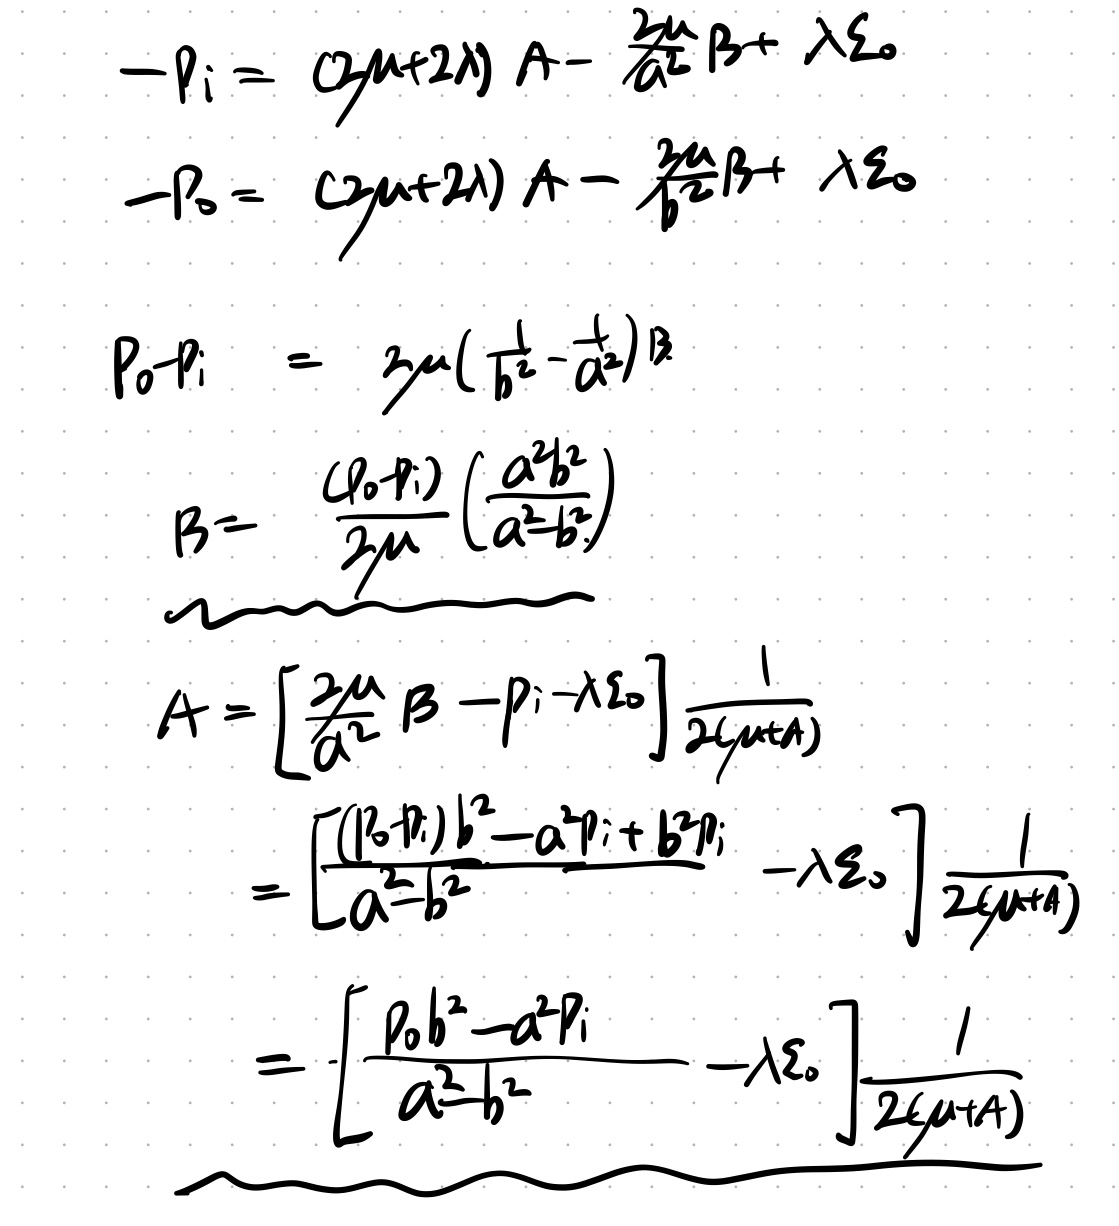 -Pi = (2μ+2λ) A - 2μ/a² B + λε₀
-P₀ = (2μ+2λ) A - 2μ/b² B + λε₀
P₀-Pi = 2μ(1/b² - 1/a²)B
B = (P₀-Pi)/2μ (a²b²/a²-b²)
A = [2μ/a² B - Pi - λε₀] 1/2(μ+A)
= [(P₀-Pi)b² - a²Pi + b²Pi/a²-b² - λε₀] 1/2(μ+A)
= [P₀b² - a²Pi/a²-b² - λε₀] 1/2(μ+A)